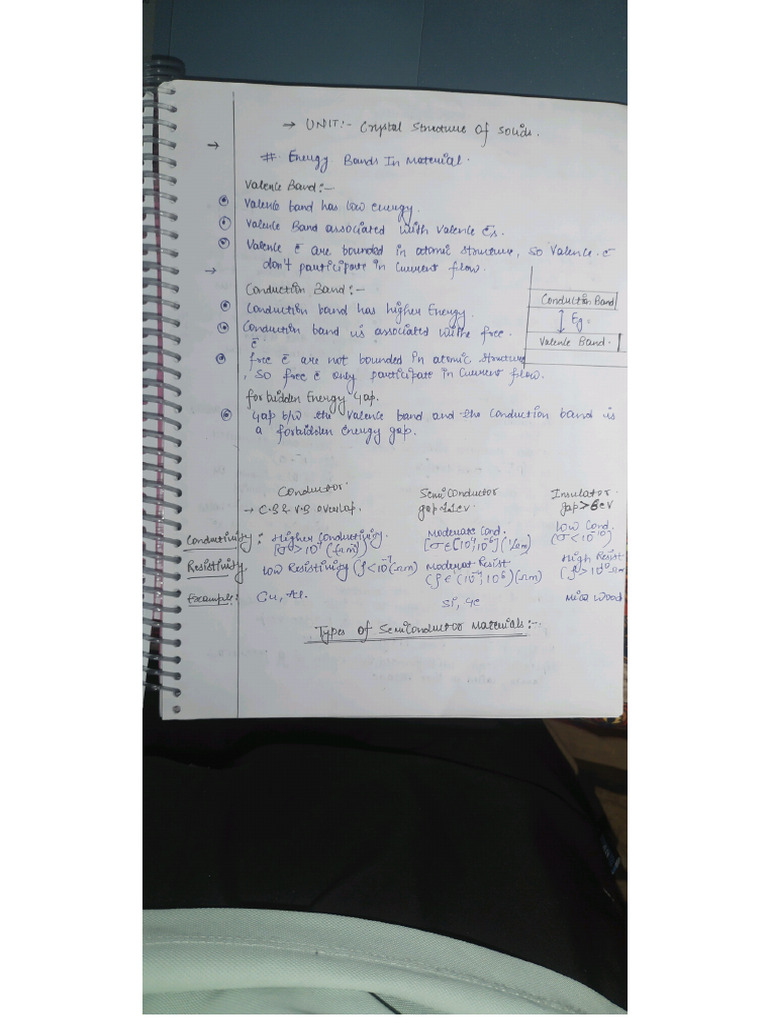 → UNIT:- Crystal Structure Of Solids.
→
# Energy Bands In Material.
Valence Band:-
Valence band has low energy.
Valence Band associated with Valence ēs.
Valence ē are bounded in atomic structure, so Valence ē
don't participate in Current flow.
→
Conduction Band:-
Conduction band has higher Energy.
Conduction band is associated with free
ē
free ē are not bounded in atomic structure
, so free ē only participate in Current flow.
Conduction Band
Eg
Valence Band.
forbidden Energy Gap.
Gap b/w the Valence band and the Conduction band is
a forbidden energy gap.
Conductor. Semiconductor Insulator.
→ C.B & V.B overlap. gap 1ev. gap > 6ev
Conductivity: Higher Conductivity. Moderate Cond. Low Cond.
Resistivity. Low Resistivity Moderat Resist High Resist
Example: Cu, Al. Si, Ge Mica Wood
Types of Semiconductor Materials:-